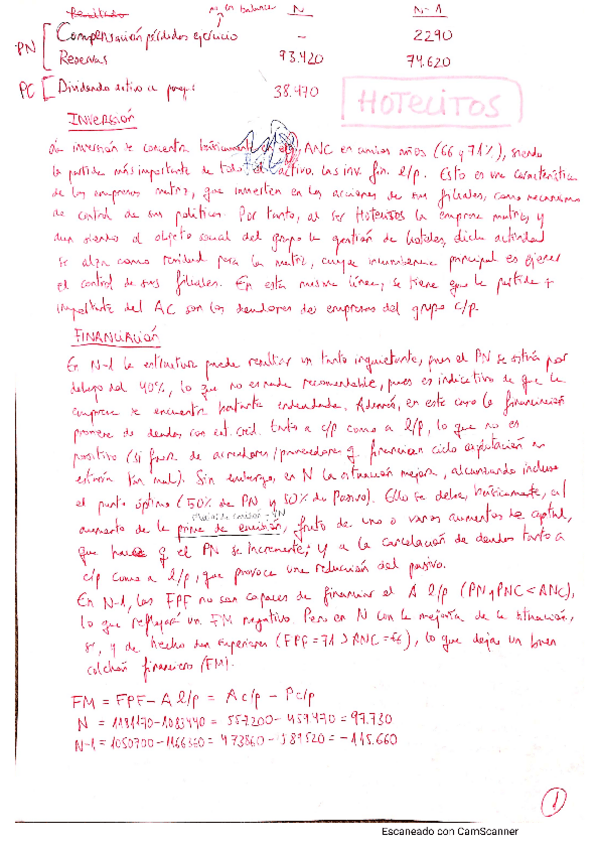 Resultado no en balance N N-1
PN Compensación pérdidas ejercicio - 2290
Reservas 93.420 74.620
PC Dividendo activo a pagar 38.470
HOTELITOS
INVERSIÓN
La inversión se concentra básicamente en el ANC en ambos años (66 y 71%), siendo
la partida más importante de todo el activo las inv. fin. l/p. Esto es una característica
de las empresas matriz, que invierten en las acciones de sus filiales, como mecanismo
de control de sus políticas. Por tanto, al ser Hotelitos la empresa matriz, y
aun siendo el objeto social del grupo la gestión de hoteles, dicha actividad
se alza como residual para la matriz, cuya incumbencia principal es ejercer
el control de sus filiales. En esta misma línea, se tiene que la partida +
importante del AC son los deudores des empresas del grupo c/p.
FINANCIACIÓN
En N-1 la estructura puede resultar un tanto inquietante, pues el PN se estira por
debajo del 40%, lo que no es nada recomendable, pues es indicativo de que la
empresa se encuentra bastante endeudada. Además, en este caso la financiación
proviene de deudas con ent. créd. tanto a c/p como a l/p, lo que no es
positivo (si fuera de acreedores/proveedores q financian ciclo explotación no
estaría tan mal). Sin embargo, en N la situación mejora, alcanzando incluso
el punto óptimo (50% de PN y 50% de Pasivo). Ello se debe, básicamente, al
aumento de la prima de emisión, fruto de uno o varios aumentos de capital,
que hace q el PN se incremente; y a la cancelación de deudas tanto a
c/p como a l/p, que provoca una reducción del pasivo.
En N-1, las FPF no son capaces de financiar el A l/p (PN y PNC < ANC),
lo que reflejará un FM negativo. Pero en N con la mejoría de la situación,
sí, y de hecho son superiores (FPF = 71 > ANC = 66), lo que deja un buen
colchón financiero (FM).
FM = FPF - A l/p = A c/p - P c/p
N = 1181170 - 1083440 = 557200 - 459470 = 97.730
N-1 = 1050700 - 1166360 = 473860 - 589520 = -115.660
1
Escaneado con CamScanner